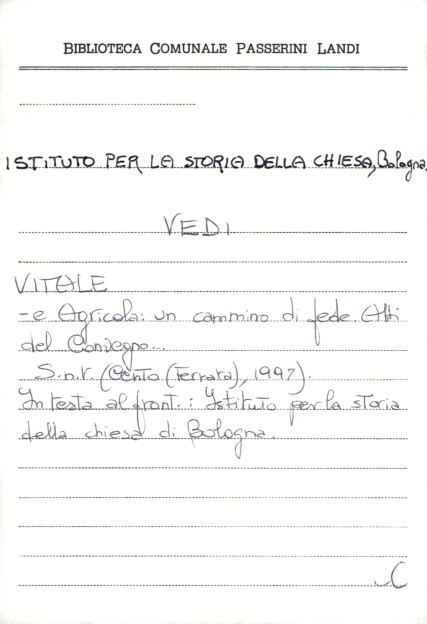 BIBLIOTECA COMUNALE PASSERINI LANDI
ISTITUTO PER LA STORIA DELLA CHIESA, Bologna.
VEDI
VITALE
- e Agricola: un cammino di fede. Atti
del Convegno...
S.n.t. (Cento (Ferrara), 1997).
In testa al front.: Istituto per la storia
della chiesa di Bologna.